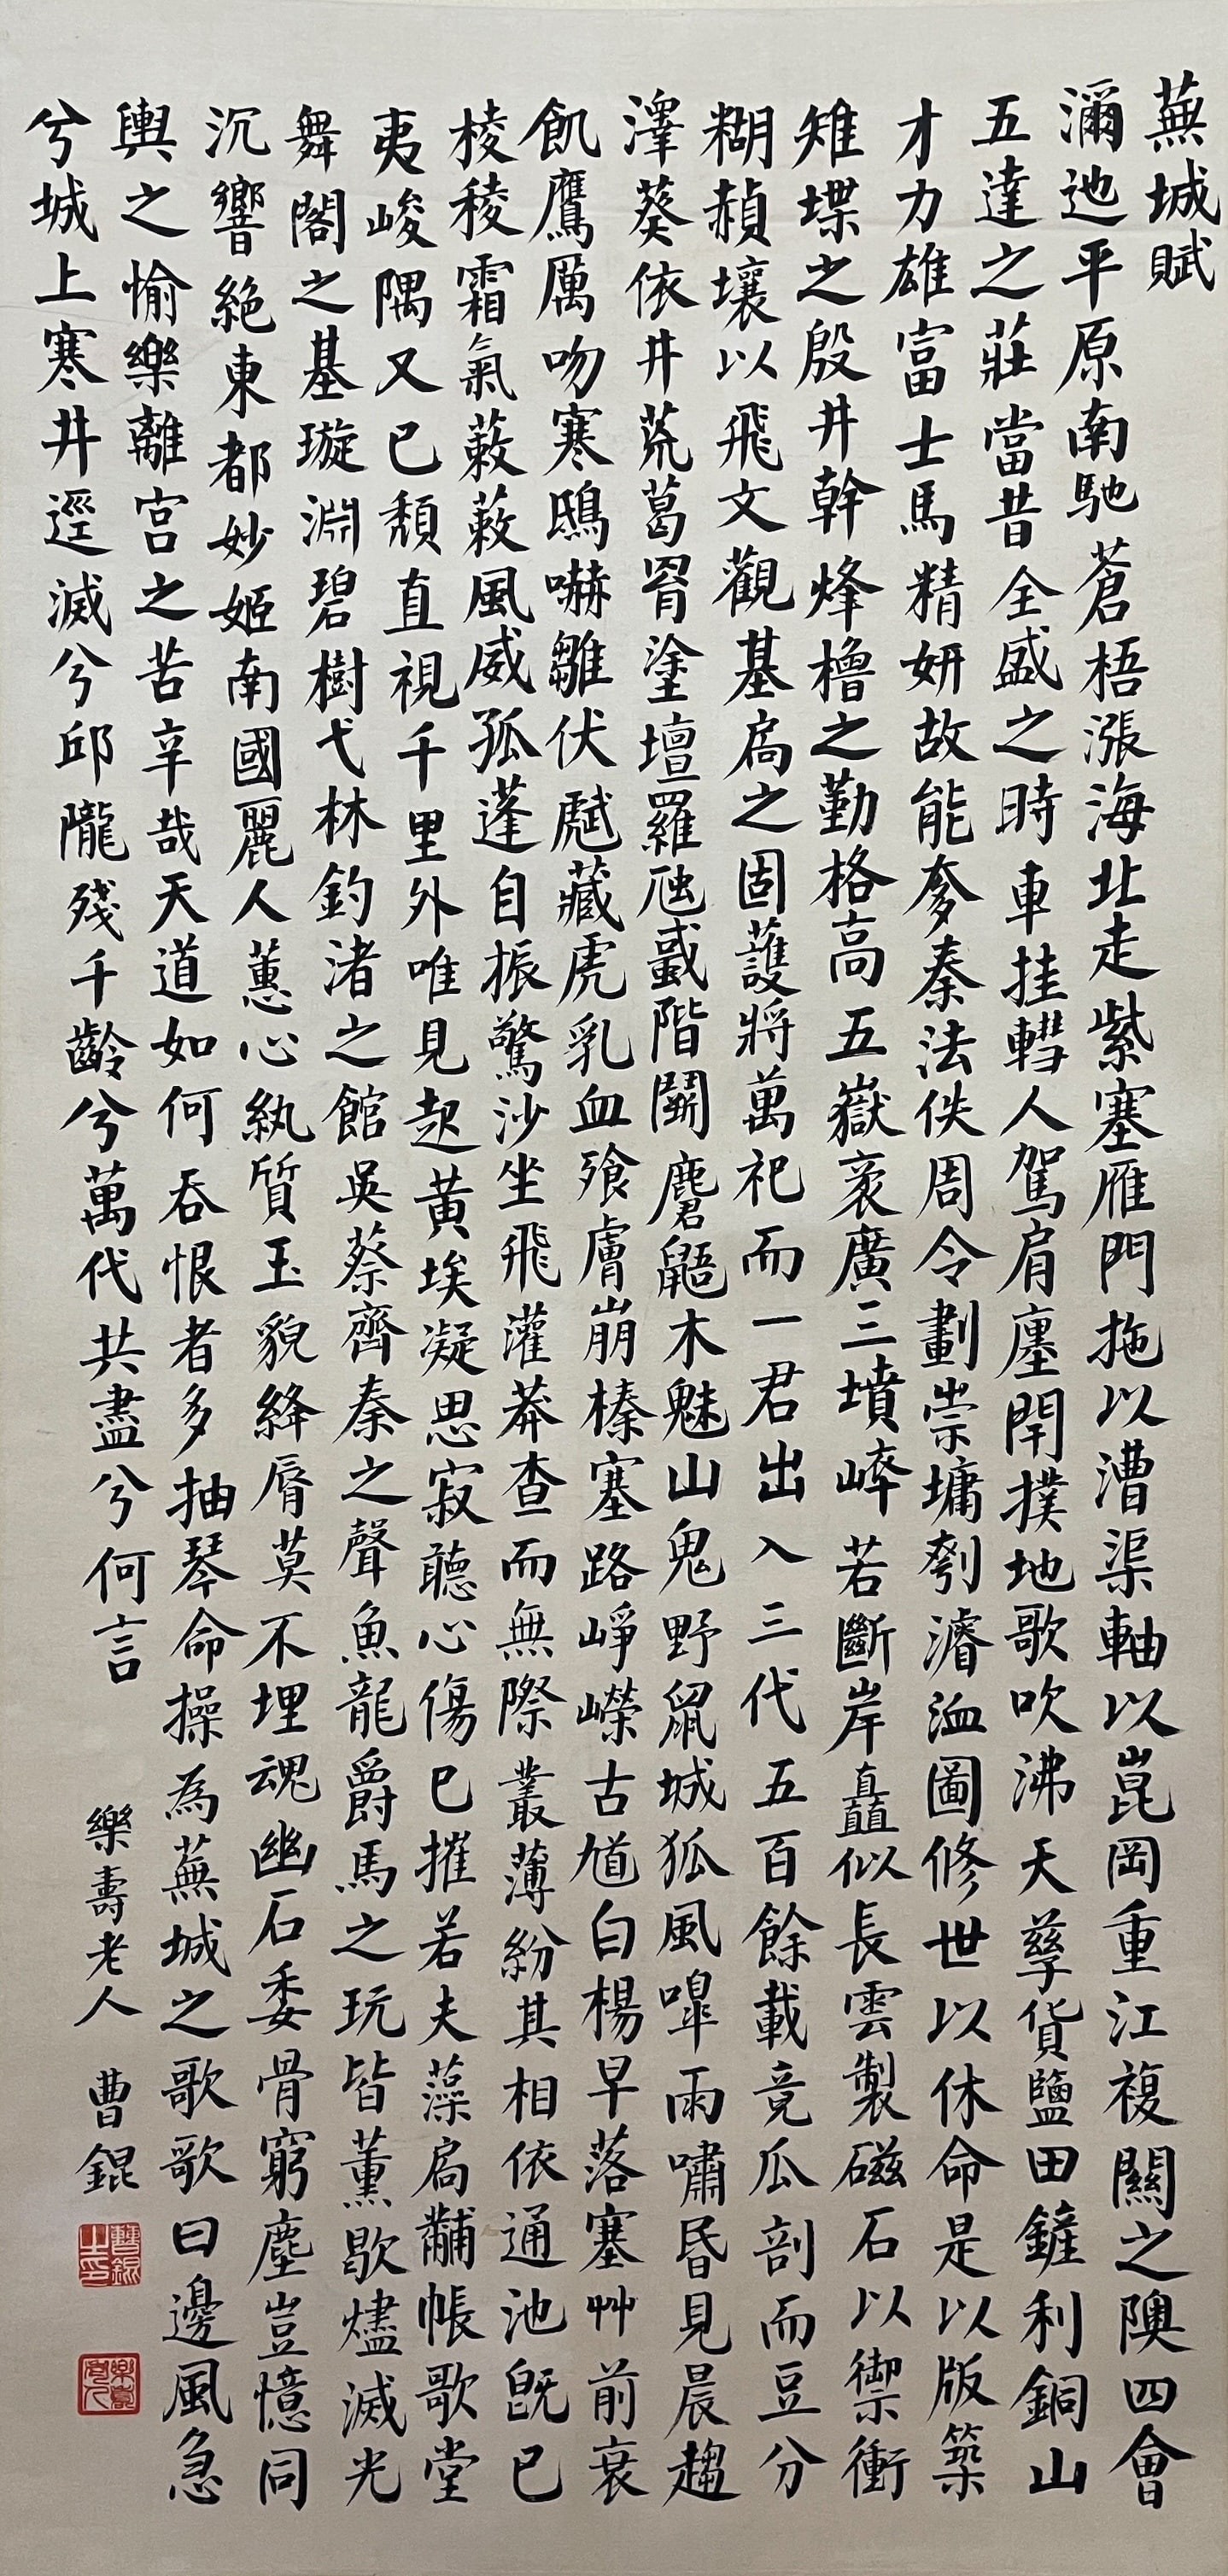 蕪城賦
濔迆平原南馳蒼梧漲海北走紫塞雁門拖以漕渠軸以崑岡重江複關之隩四會
五達之莊當昔全盛之時車挂轊人駕肩廛閈撲地歌吹沸天孳貨鹽田鏟利銅山
才力雄富士馬精妍故能奓秦法佚周令劃崇墉刳濬洫圖修世以休命是以版築
雉堞之殷井幹烽櫓之勤格高五嶽袤廣三墳崪若斷岸矗似長雲製磁石以禦衝
糊赬壤以飛文觀基扃之固護將萬祀而一君出入三代五百餘載竟瓜剖而豆分
澤葵依井荒葛罥塗壇羅虺蜮階鬭麏鼯木魅山鬼野鼠城狐風嘷雨嘯昏見晨趨
飢鷹厲吻寒鴟嚇雛伏虣藏虎乳血飱膚崩榛塞路崢嶸古馗白楊早落塞艸前衰
棱稜霜氣蔌蔌風威孤蓬自振驚沙坐飛灌莽查而無際叢薄紛其相依通池旣已
夷峻隅又已頹直視千里外唯見起黃埃凝思寂聽心傷已摧若夫藻扃黼帳歌堂
舞閣之基璇淵碧樹弋林釣渚之館吳蔡齊秦之聲魚龍爵馬之玩皆薰歇燼滅光
沉響絕東都妙姬南國麗人蕙心紈質玉貌絳脣莫不埋魂幽石委骨窮塵豈憶同
輿之愉樂離宮之苦辛哉天道如何吞恨者多抽琴命操為蕪城之歌歌曰邊風急
兮城上寒井逕滅兮邱隴殘千齡兮萬代共盡兮何言
樂壽老人 曹錕